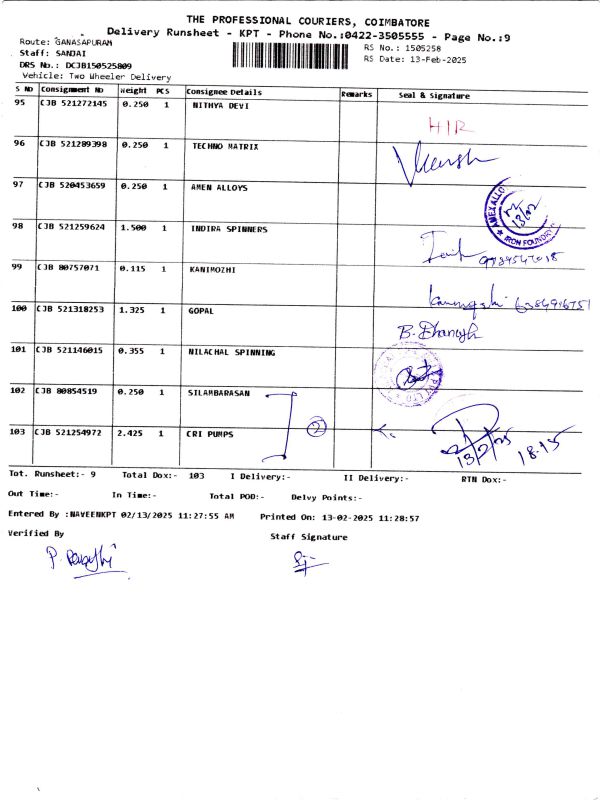 THE PROFESSIONAL COURIERS, COIMBATORE
Delivery Runsheet - KPT - Phone No.:0422-3505555 - Page No.:9
Route: GANASAPURAM
RS No.: 1505258
Staff: SANDAI
RS Date: 13-Feb-2025
DRS No.: DCJB150525809
Vehicle: Two Wheeler Delivery
S NO Consignment No Weight PCS Consignee Details Remarks Seal & Signature
95 CJB 521272145 0.250 1 NITHYA DEVI
HIR
96 CJB 521289398 0.250 1 TECHNO MATRIX
97 CJB 520453659 0.250 1 AMEN ALLOYS
AMEXALLO
13/02
IRON FOUNDRY
98 CJB 521259624 1.500 1 INDIRA SPINNERS
99 CJB 80757071 0.115 1 KANIMOZHI
100 CJB 521318253 1.325 1 GOPAL
B. Dhanagh
101 CJB 521146015 0.355 1 NILACHAL SPINNING
102 CJB 80854519 0.250 1 SILAMBARASAN
2
103 CJB 521254972 2.425 1 CRI PUMPS
13/2/25
18.15
Tot. Runsheet:- 9 Total Dox:- 103 I Delivery:- II Delivery:- RTN Dox:-
Out Time:- In Time:- Total POD:- Delvy Points:-
Entered By :NAVEENKPT 02/13/2025 11:27:55 AM Printed On: 13-02-2025 11:28:57
Verified By
Staff Signature